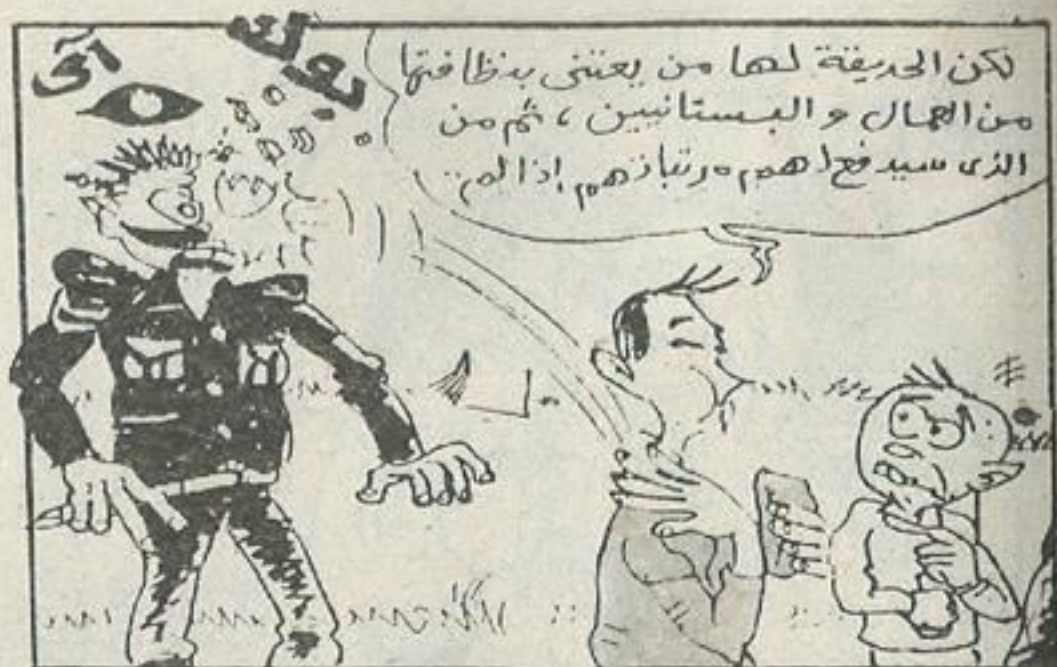 لكن الحديقة لها من يعتني بنظافتها
من العمال و البستانيين ، ثم من
الذى سيدفع لهم مرتباتهم إذا لم ..
بوك
آى